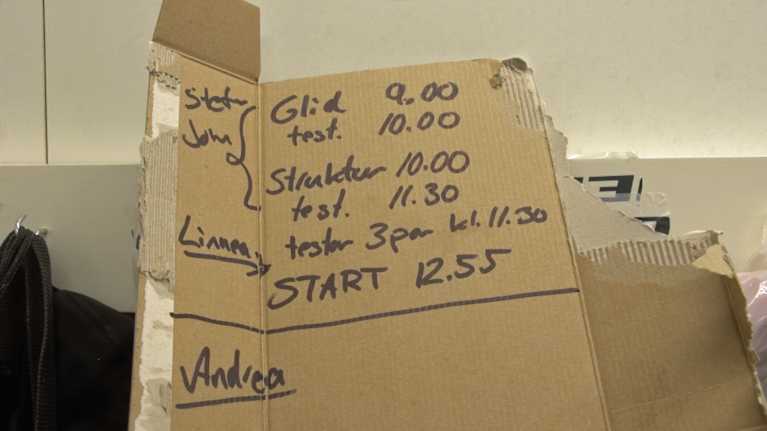 Stefan
John
Glid 9.00
test. 10.00
Struktur 10.00
test. 11.30
Linnea
testar 3 par kl. 11.30
START 12.55
Andrea